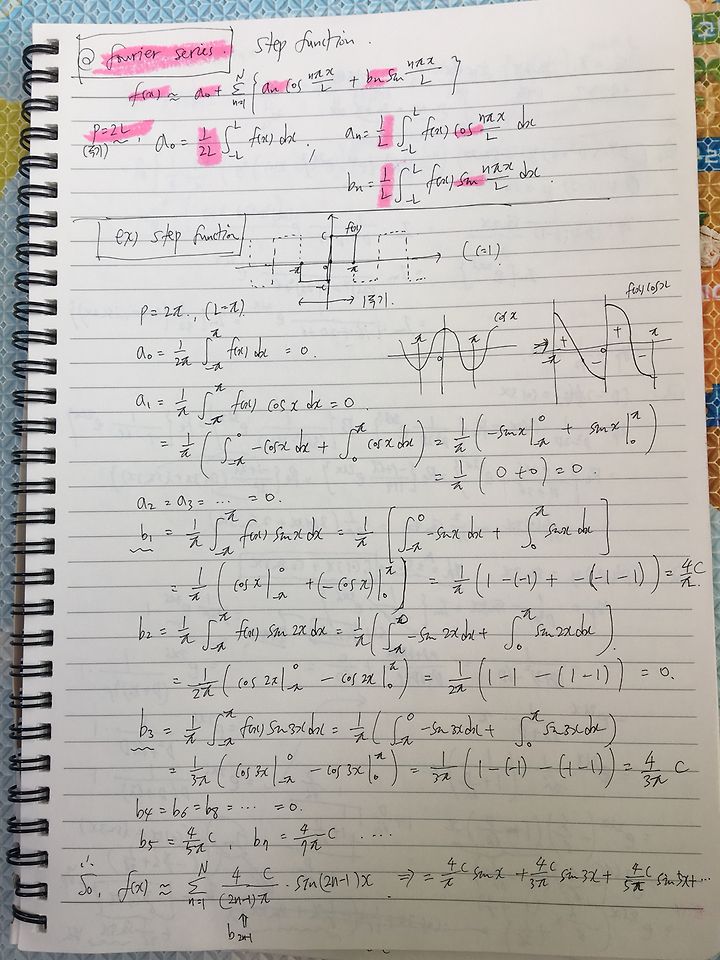 ◎ fourier series. step function.
f(x) ≈ a₀ + Σ_{n=1}^{N} { aₙ cos nπx/L + bₙ sin nπx/L }
P=2L
(주기) a₀ = 1/2L ∫_{-L}^{L} f(x) dx, aₙ = 1/L ∫_{-L}^{L} f(x) cos nπx/L dx
bₙ = 1/L ∫_{-L}^{L} f(x) sin nπx/L dx.
ex) step function
c f(x) -π 0 π -c (C=1)
1주기.
P=2π, (L=π)
cos x -π 0 π ⇒ f(x) cos x -π + - 0 + - π
a₀ = 1/2π ∫_{-π}^{π} f(x) dx = 0.
a₁ = 1/π ∫_{-π}^{π} f(x) cos x dx = 0.
= 1/π ( ∫_{-π}^{0} -cos x dx + ∫_{0}^{π} cos x dx ) = 1/π ( -sin x |_{-π}^{0} + sin x |_{0}^{π} )
= 1/π ( 0 + 0 ) = 0.
a₂ = a₃ = ⋯ = 0.
b₁ = 1/π ∫_{-π}^{π} f(x) sin x dx = 1/π [ ∫_{-π}^{0} -sin x dx + ∫_{0}^{π} sin x dx ]
= 1/π ( cos x |_{-π}^{0} + (-cos x) |_{0}^{π} ) = 1/π ( 1-(-1) + -(-1-1) ) = 4/π C
b₂ = 1/π ∫_{-π}^{π} f(x) sin 2x dx = 1/π ( ∫_{-π}^{0} -sin 2x dx + ∫_{0}^{π} sin 2x dx ).
= 1/2π ( cos 2x |_{-π}^{0} - cos 2x |_{0}^{π} ) = 1/2π ( 1-1 - (1-1) ) = 0.
b₃ = 1/π ∫_{-π}^{π} f(x) sin 3x dx = 1/π ( ∫_{-π}^{0} -sin 3x dx + ∫_{0}^{π} sin 3x dx )
= 1/3π ( cos 3x |_{-π}^{0} - cos 3x |_{0}^{π} ) = 1/3π ( 1-(-1) - (-1-1) ) = 4/3π C
b₄ = b₆ = b₈ = ⋯ = 0.
b₅ = 4/5π C, b₇ = 4/7π C ⋯
∴ So, f(x) ≈ Σ_{n=1}^{N} 4C/(2n-1)π · sin(2n-1)x ⇒ = 4C/π sin x + 4C/3π sin 3x + 4C/5π sin 5x + ⋯
⇑
b_{2n-1}